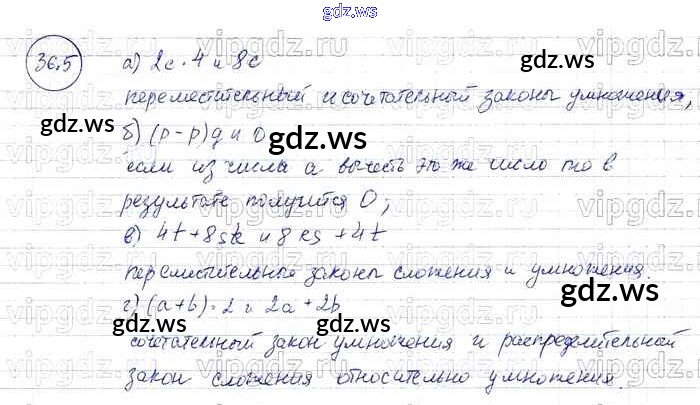 gdz.ws
36.5
а) 2c·4 и 8c
gdz.ws
переместительный и сочетательный законы умножения,
gdz.ws
б) (p-p)q и 0
gdz.ws
если из числа а вычесть это же число то в
результате получится 0;
в) 4t+8sk и 8ks+4t
переместительные законы сложения и умножения.
г) (a+b)·2 и 2a+2b
gdz.ws gdz.ws
сочетательный закон умножения и распределительной
закон сложения относительно умножения.
gdz.ws
vipgdz.ru